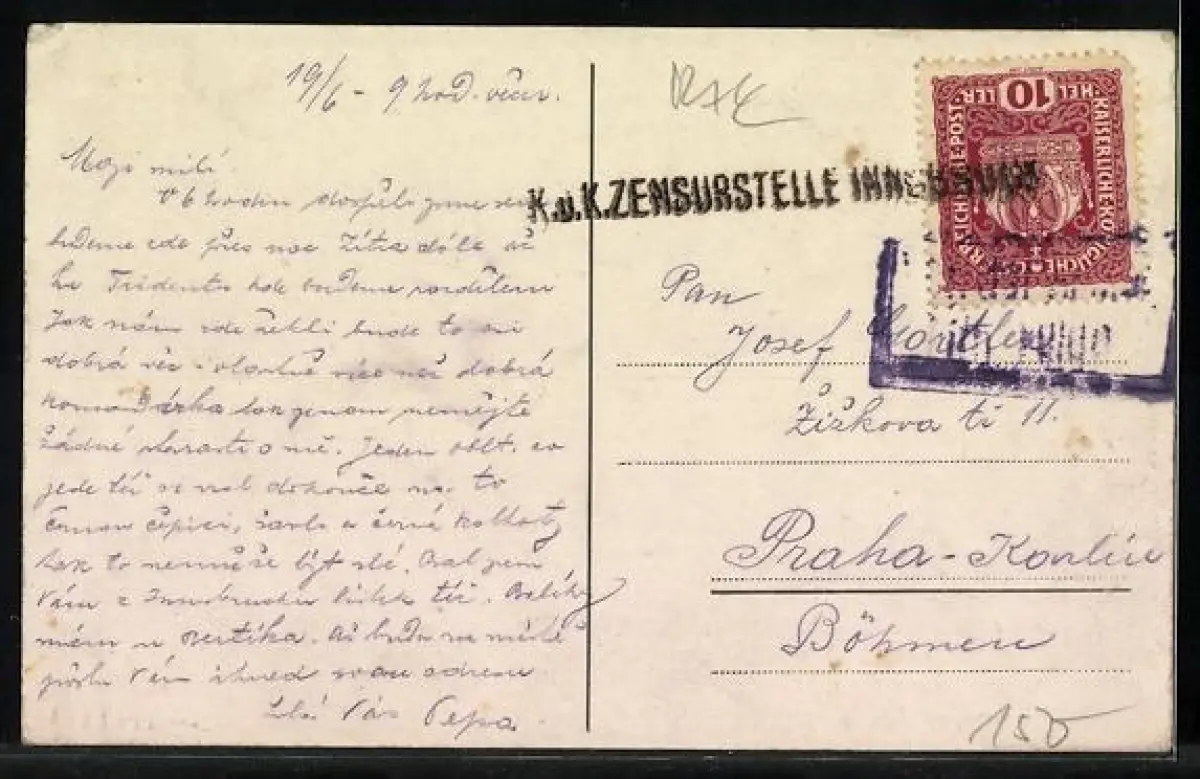 19/6 - 9 hod. večer.
Moji milí
V 6 hodin dospěli jsme sem
budeme zde přes noc Zítra dále až
do Tridentu kde budeme rozděleni
Jak nám zde řekli bude to
dobrá věc - vlastně více než dobrá
komandýrka tak jenom nemějte
žádné starosti o mě. Jeden oblt. co
jede též si vzal dokonce na to
černou čepici, šavli a černé kalhoty
tak to nemůže být zlé. Psal jsem
Vám z Innsbrucku lístek též.
mám u. Až budu na místě
pošlu Vám ihned svou adresu
Líbá Vás Pepa.
K.u.K. ZENSURSTELLE INNSBRUCK
KAISERLICHE KÖNIGLICHE ÖSTERREICHISCHE POST
10
HELLER
Pan
Josef
Žižkova tř 11.
Praha - Karlín
Böhmen
150